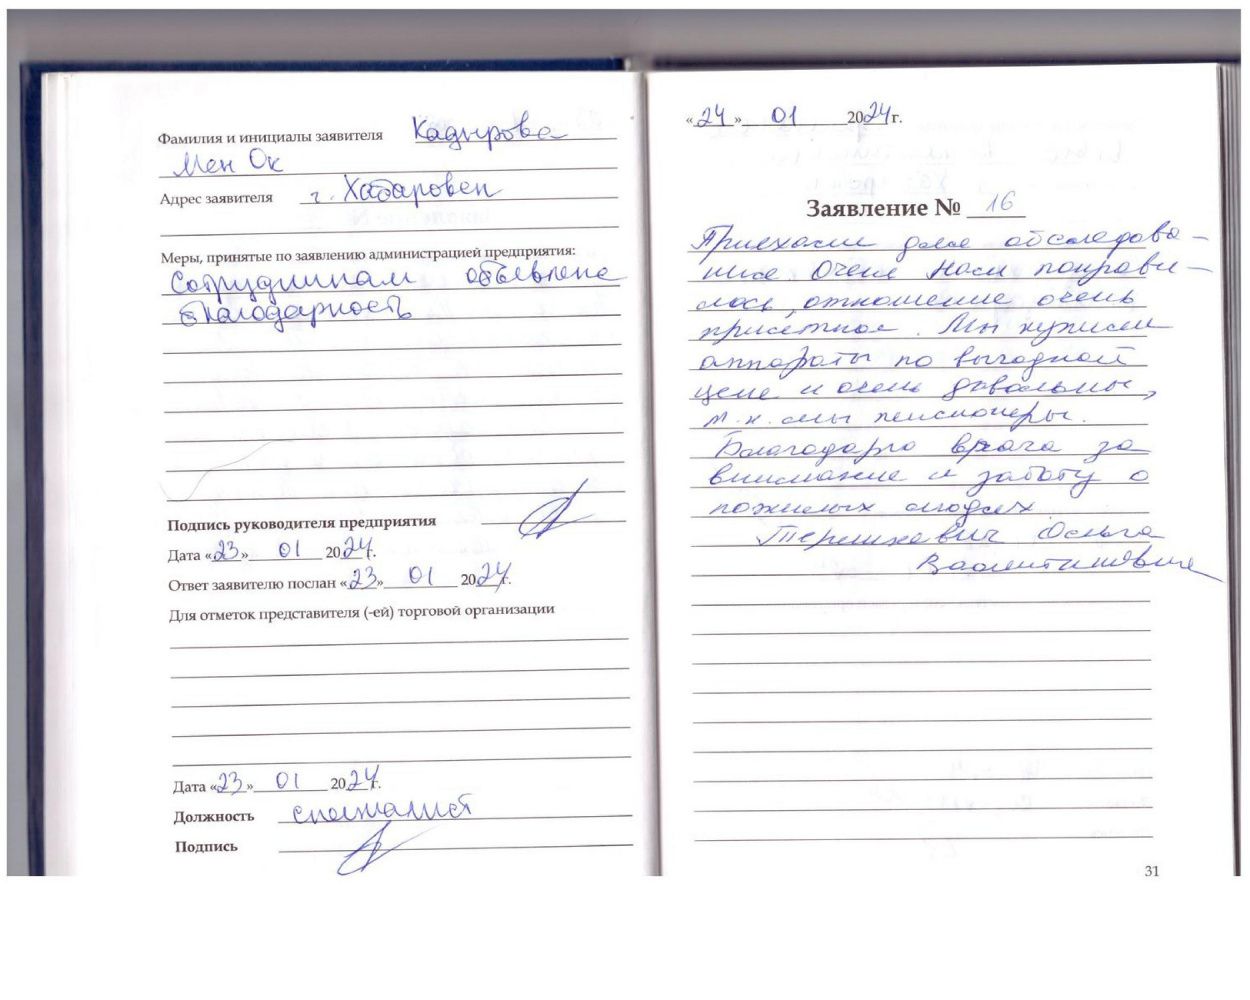 Фамилия и инициалы заявителя Кадырова
Мен Ок
Адрес заявителя г. Хабаровск
Меры, принятые по заявлению администрацией предприятия:
Сотрудникам объявлена
благодарность
Подпись руководителя предприятия
Дата «23» 01 2024г.
Ответ заявителю послан «23» 01 2024г.
Для отметок представителя (-ей) торговой организации
Дата «23» 01 2024г.
Должность специалист
Подпись
«24» 01 2024г.
Заявление № 16
Приехали для обследова-
ния. Очень нам понрави-
лось, отношение очень
приятное. Мы купили
аппараты по выгодной
цене и очень довольны,
т.к. мы пенсионеры.
Благодарю врача за
внимание и заботу о
пожилых людях
Терешкевич Ольга
Валентиновна
31